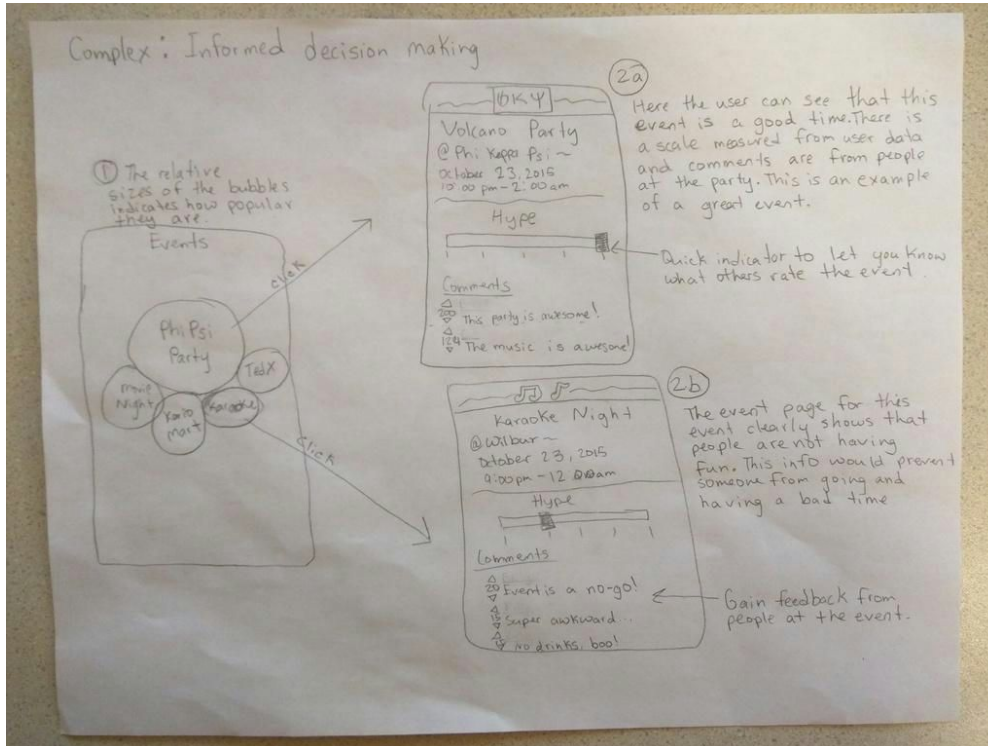 Complex: Informed decision making
① The relative
sizes of the bubbles
indicates how popular
they are.
Events
Phi Psi
Party
Movie
Night
Kario
Mart
Karaoke
TedX
click
click
2a
ΦKΨ
Volcano Party
@ Phi Kappa Psi ~
October 23, 2015
10:00 pm - 2:00 am
Hype
Comments
200 This party is awesome!
124 The music is awesome!
Here the user can see that this
event is a good time. There is
a scale measured from user data
and comments are from people
at the party. This is an example
of a great event.
Quick indicator to let you know
what others rate the event.
2b
Karaoke Night
@ Wilbur ~
October 23, 2015
9:00 pm - 12 00am
Hype
Comments
20 Event is a no-go!
Super awkward...
No drinks, boo!
The event page for this
event clearly shows that
people are not having
fun. This info would prevent
someone from going and
having a bad time
Gain feedback from
people at the event.